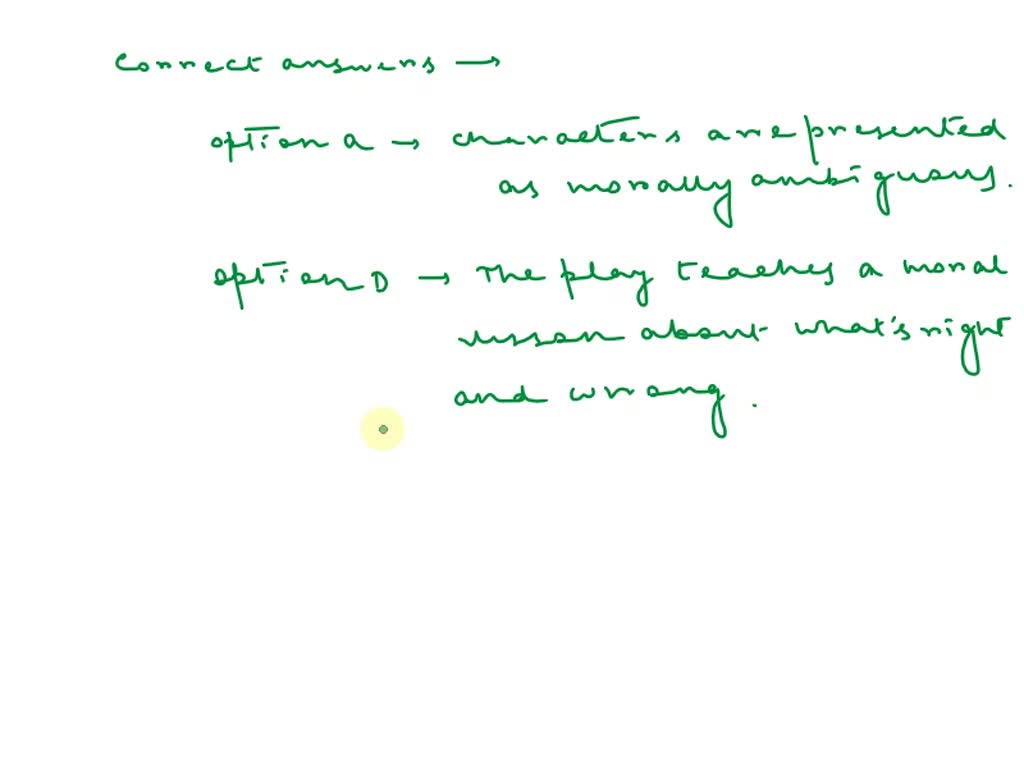 Correct answers →
option a → characters are presented
as morally ambiguous.
option D → The play teaches a moral
lesson about what's right
and wrong.